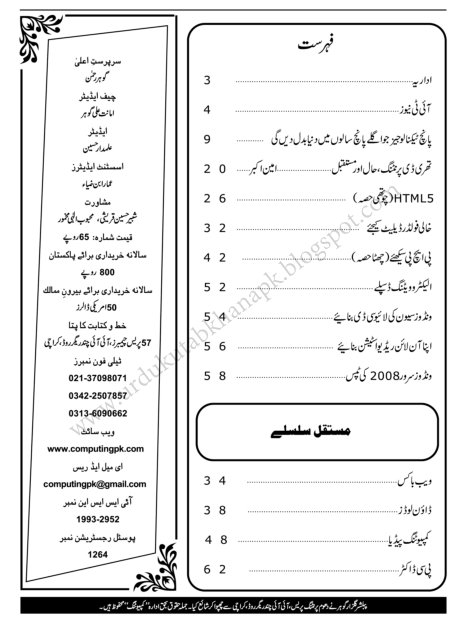 فہرست
اداریہ 3
آئی ٹی نیوز 4
پانچ ٹیکنالوجیز جو اگلے پانچ سالوں میں دنیا بدل دیں گی 9
تھری ڈی پرنٹنگ، حال اور مستقبل امین اکبر 2 0
HTML5 (چوتھی حصہ) 2 6
خالی فولڈر ڈیلیٹ کیجئے 3 2
پی ایچ پی سیکھئے (چھٹا حصہ) 4 2
الیکٹرو ویٹنگ ڈسپلے 5 2
ونڈوز سیون کی لائیو سی ڈی بنایئے 5 4
اپنا آن لائن ریڈیو اسٹیشن بنایئے 5 6
ونڈوز سرور 2008 کی ٹپس 5 8
مستقل سلسلے
ویب باکس 3 4
ڈاؤن لوڈز 3 8
کمپیوٹنگ پیڈیا 4 8
پی سی ڈاکٹر 6 2
سرپرستِ اعلیٰ
گوہر رحمٰن
چیف ایڈیٹر
امانت علی گوہر
ایڈیٹر
علمدار حسین
اسسٹنٹ ایڈیٹرز
عمار ابن ضیاء
مشاورت
شبیر حسین قریشی، محبوب الٰہی مخمور
قیمت شمارہ: 65 روپے
سالانہ خریداری برائے پاکستان
800 روپے
سالانہ خریداری برائے بیرونِ ممالک
50 امریکی ڈالرز
خط و کتابت کا پتا
57 پریس چیمبرز، آئی آئی چندریگر روڈ، کراچی
ٹیلی فون نمبرز
021-37098071
0342-2507857
0313-6090662
ویب سائٹ
www.computingpk.com
ای میل ایڈریس
computingpk@gmail.com
آئی ایس ایس این نمبر
1993-2952
پوسٹل رجسٹریشن نمبر
1264
پبلشر گلزار گوہر نے دھوم پرنٹنگ پریس، آئی آئی چندریگر روڈ، کراچی سے چھپوا کر شائع کیا۔ جملہ حقوق بحق ادارہ "کمپیوٹنگ" محفوظ ہیں۔
www.urdukutabkhanapk.blogspot.com